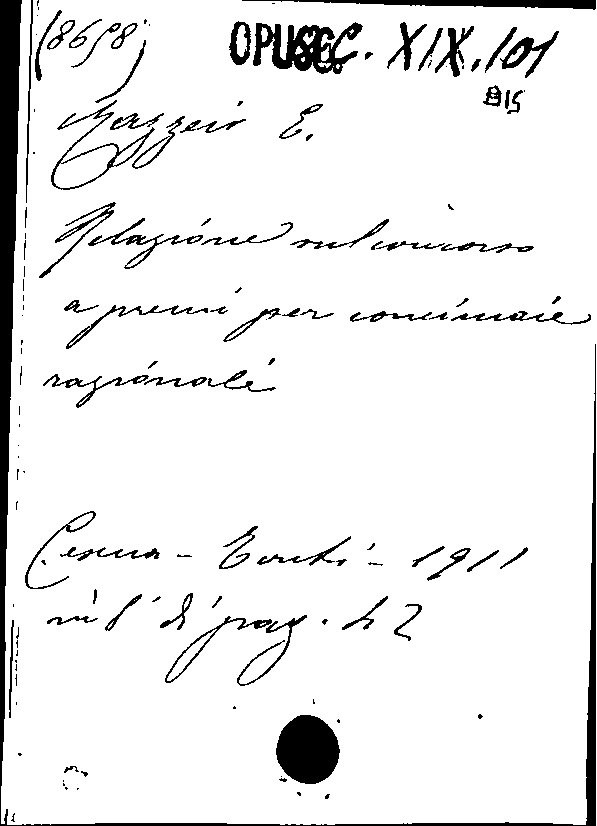 (8658) OPUSC. XIX.101
BIS
Mazzeio E.
Relazione sul concorso
a premi per concimaie
razionali
Cesena - Tonti - 1911
in 8° di pag. 42